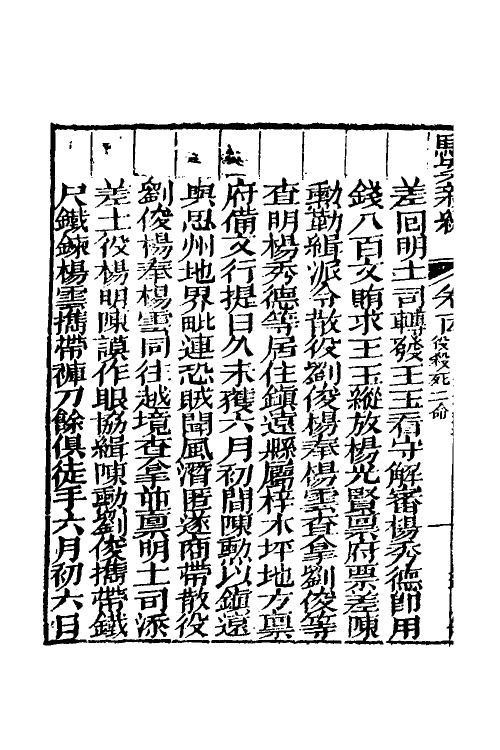 差回明土司轉發王玉看守解審楊秀德卽用
錢八百文賄求王玉縱放楊光賢稟府票差陳
動勒緝派令散役劉俊楊奉楊雲查拿劉俊等
查明楊秀德等居住鎮遠縣屬梓木坪地方稟
府備文行提日久未獲六月初間陳動以鎮遠
與思州地界毗連恐賊聞風潛匿遂商帶散役
劉俊楊奉楊雲同往越境查拿並稟明土司添
差土役楊明陳謨作眼協緝陳動劉俊攜帶鐵
尺鐵鍊楊雲攜帶褲刀餘俱徒手六月初六日
役殺死二命